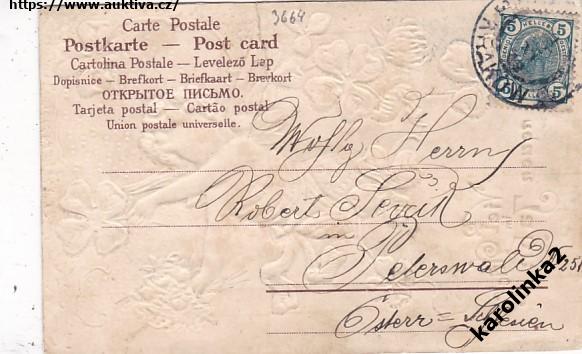 https://www.auktiva.cz/
3664
Carte Postale
Postkarte — Post card
Cartolina Postale — Levelező Lap
Dopisnice — Brefkort — Briefkaart — Brevkort
ОТКРЫТОЕ ПИСЬМО.
Tarjeta postal — Cartão postal
Union postale universelle.
5 HELLER 5
5 5
Herrn
Robert Ševčik
in
Peterswald
Österr = Schlesien
karolinka2